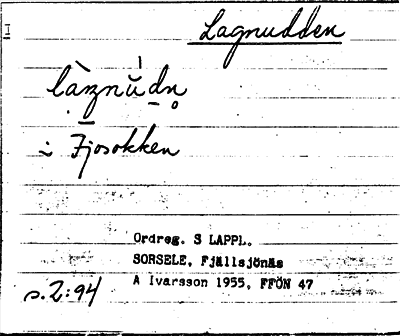 I
Lagnudden
làgnu̇̀dn̥
i Fjosokken
Ordreg. S LAPPL.
SORSELE, Fjällsjönäs
A Ivarsson 1955, FFÖN 47
s. 2:94